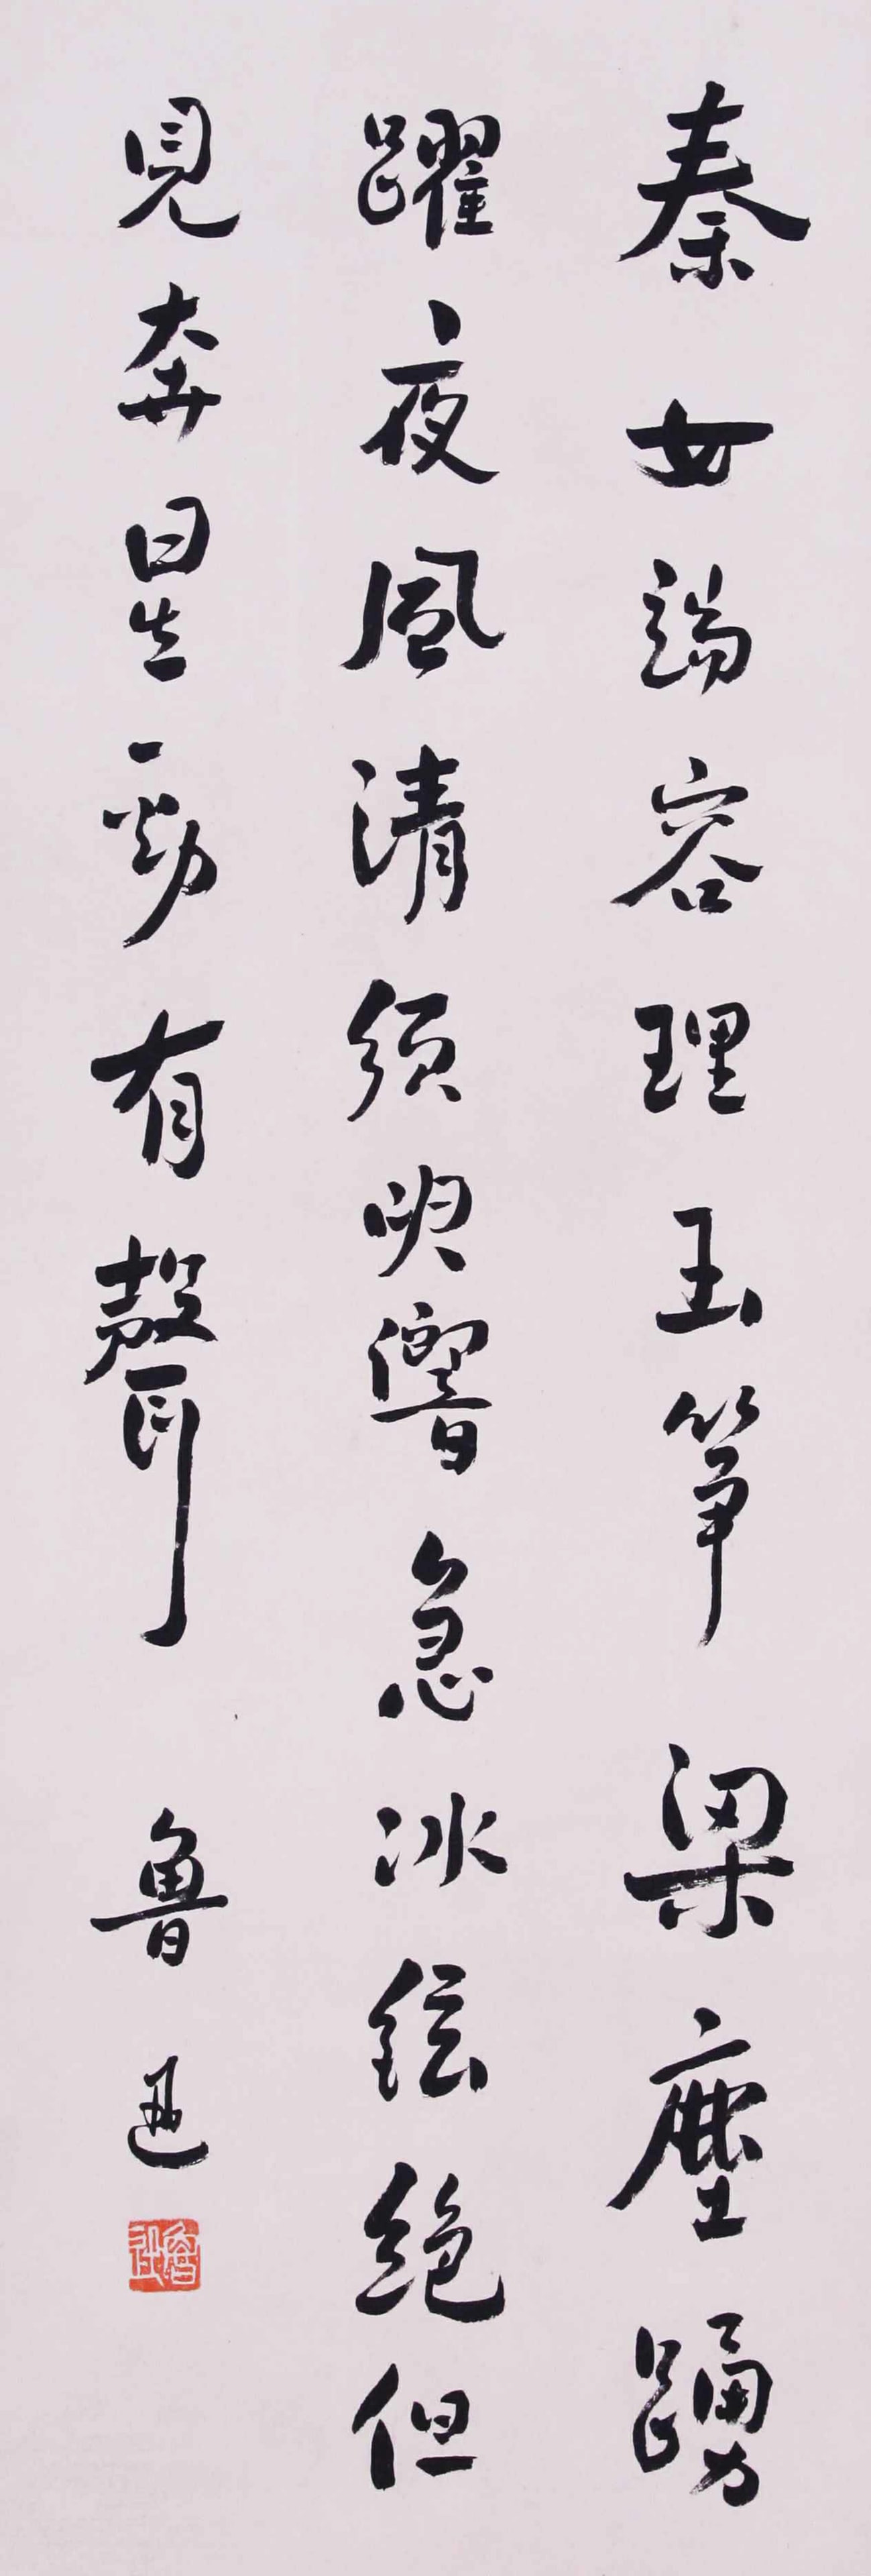 秦女端容理玉筝梁塵踴
躍夜風清須臾響急冰絃絕但
見奔星勁有聲 魯迅
魯迅